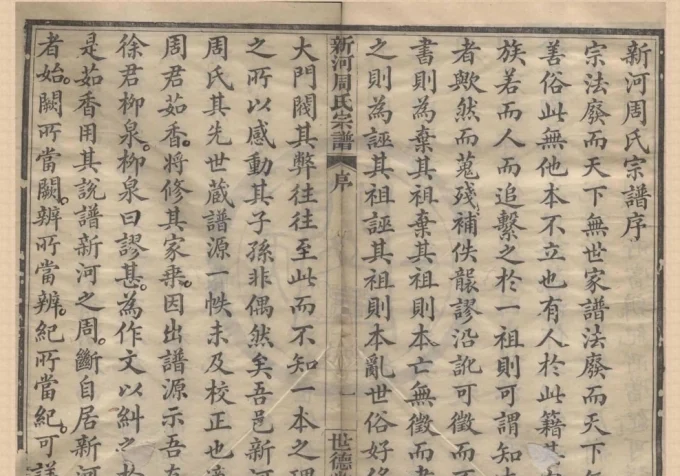 新河周氏宗譜序
宗法廢而天下無世家譜法廢而天下無
善俗此無他本不立也有人於此籍其
族若而人而追繫之於一祖則可謂知
者歟然而蒐殘補佚襲謬沿訛可徵而
書則為棄其祖棄其祖則本亡無徵而
之則為誣其祖誣其祖則本亂世俗好
新河周氏宗譜 序 一 世德
大門閥其弊往往至此而不知一本之理
之所以感動其子孫非偶然矣吾邑新河
周氏其先世蔵譜源一帙未及校正也
周君茹香。將修其家乗。因出譜源示吾
徐君柳泉。柳泉曰謬甚。為作文以糾之於
是茹香用其說譜新河之周。斷自居新河
者始。闕所當闕。辨所當辨。紀所當紀。可